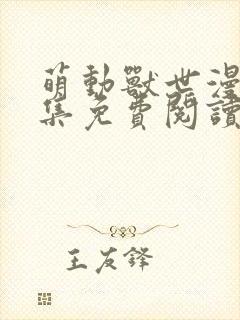 萌動獸世漫
集免費閱讀
王友鋒